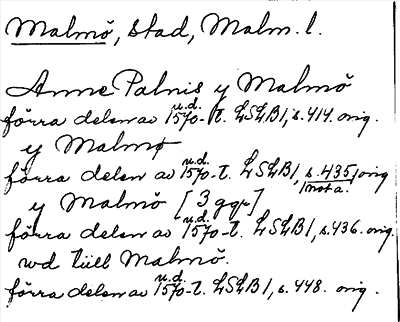 Malmö, stad, Malm. l.
Anne Palnis y Malmö
förra delen av u.d. 1570-t. LSLB1, s. 414. orig.
y Malmø
förra delen av u.d. 1570-t. LSLB1, s. 435, orig
nota.
y Malmö [3 ggr]
förra delen av u.d. 1570-t. LSLB1, s. 436. orig.
wd tüll Malmö.
förra delen av u.d. 1570-t. LSLB1, s. 448. orig.